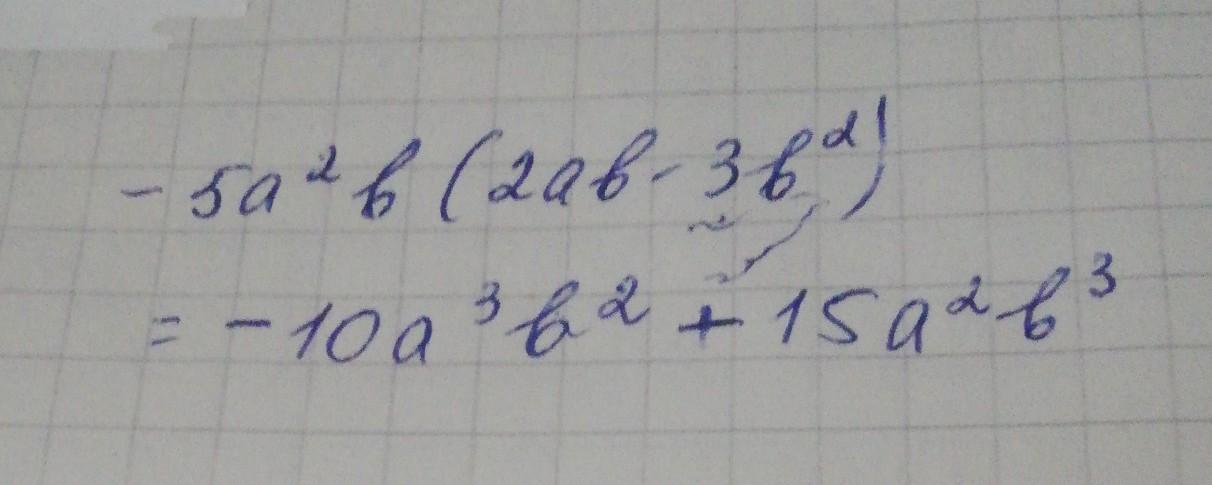 -5a²b(2ab-3b²)
=-10a³b²+15a²b³